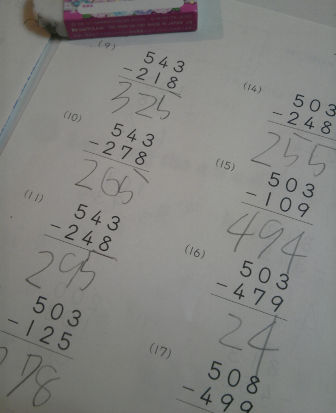 (9)
543
-218
325
(10)
543
-278
265
(11)
543
-248
295
503
-125
378
(14)
503
-248
255
(15)
503
-109
494
(16)
503
-479
24
(17)
508
-499